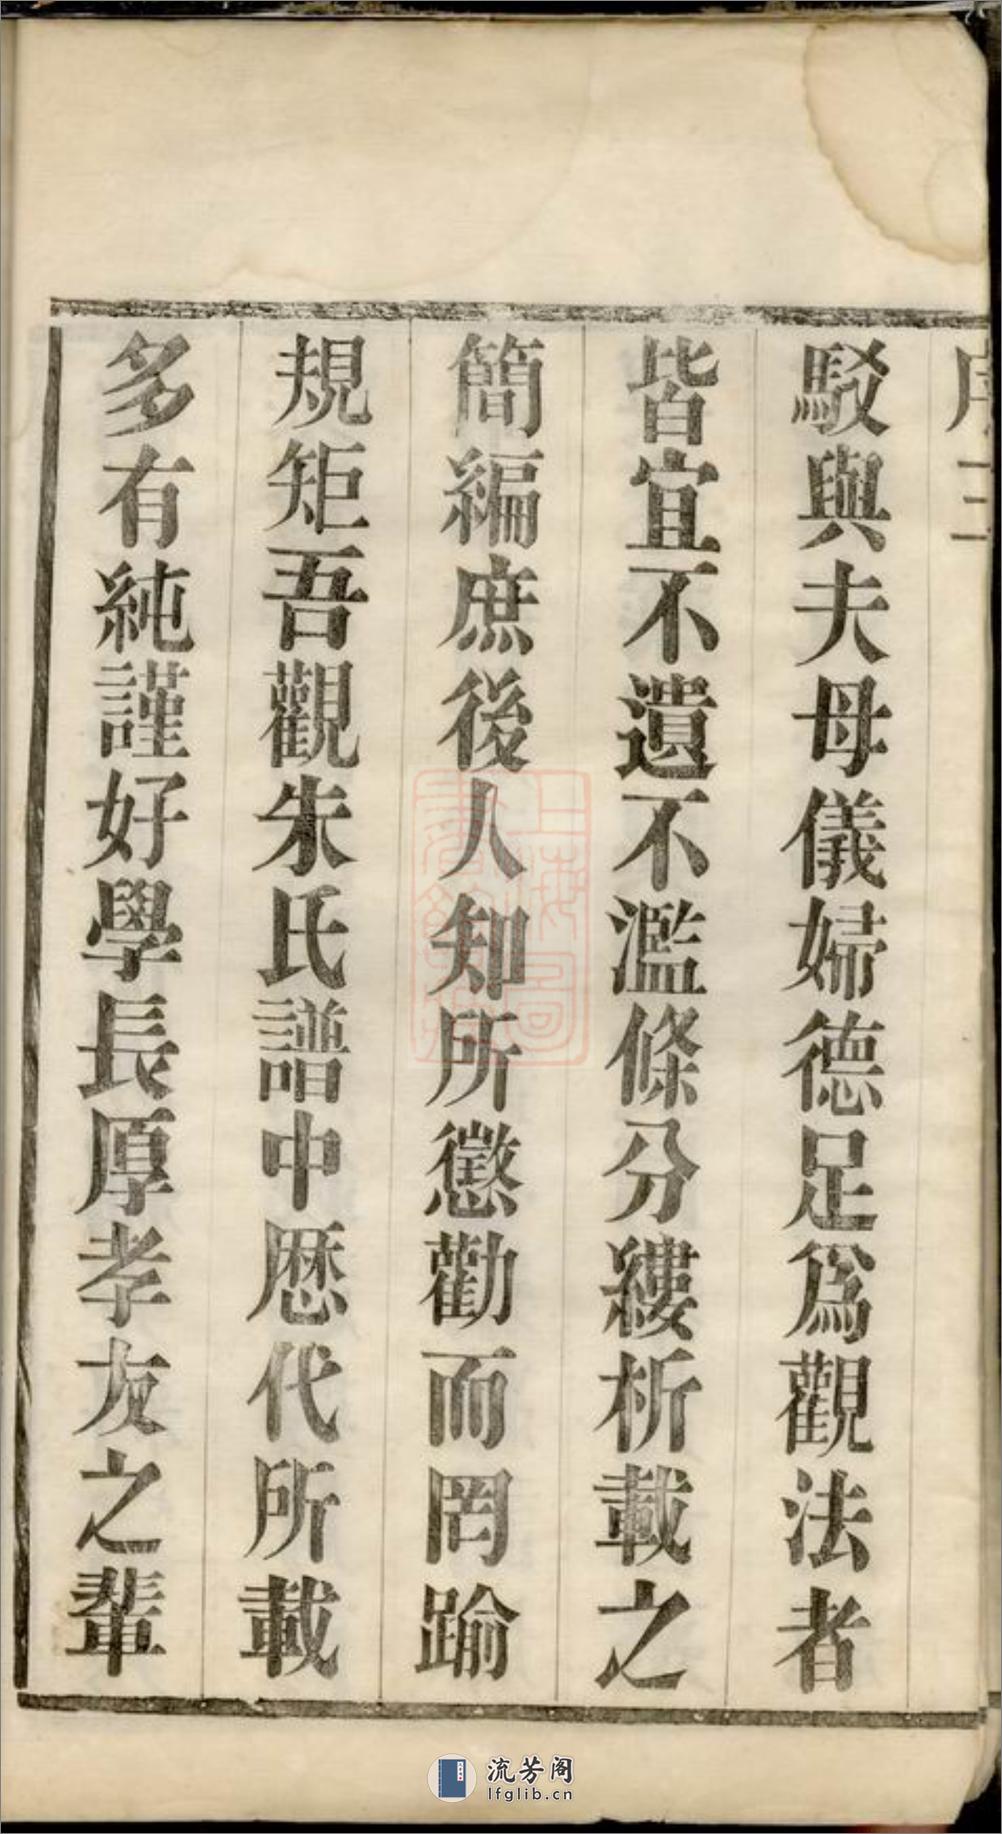 駁與夫母儀婦德足爲觀法者
皆宜不遺不濫條分縷析載之
簡編庶後人知所懲勸而罔踰
規矩吾觀朱氏譜中歴代所載
多有純謹好學長厚孝友之輩
上海圖
書館藏
流芳阁
lfglib.cn